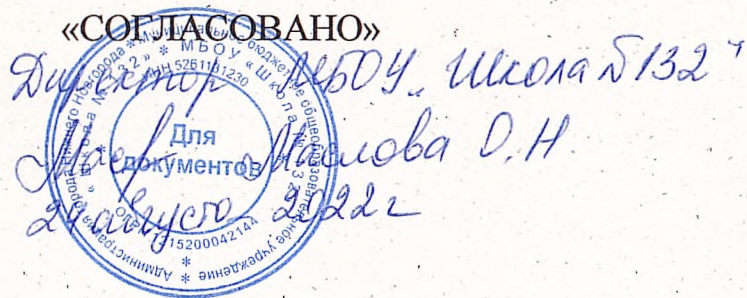 «СОГЛАСОВАНО»
Директор МБОУ „Школа №132"
Маслова О.Н.
24 августа 2022 г
Администрация города Нижнего Новгорода * Муниципальное бюджетное общеобразовательное учреждение *
* МБОУ «Школа
ИНН 5261101230
Для
документов
15200042144